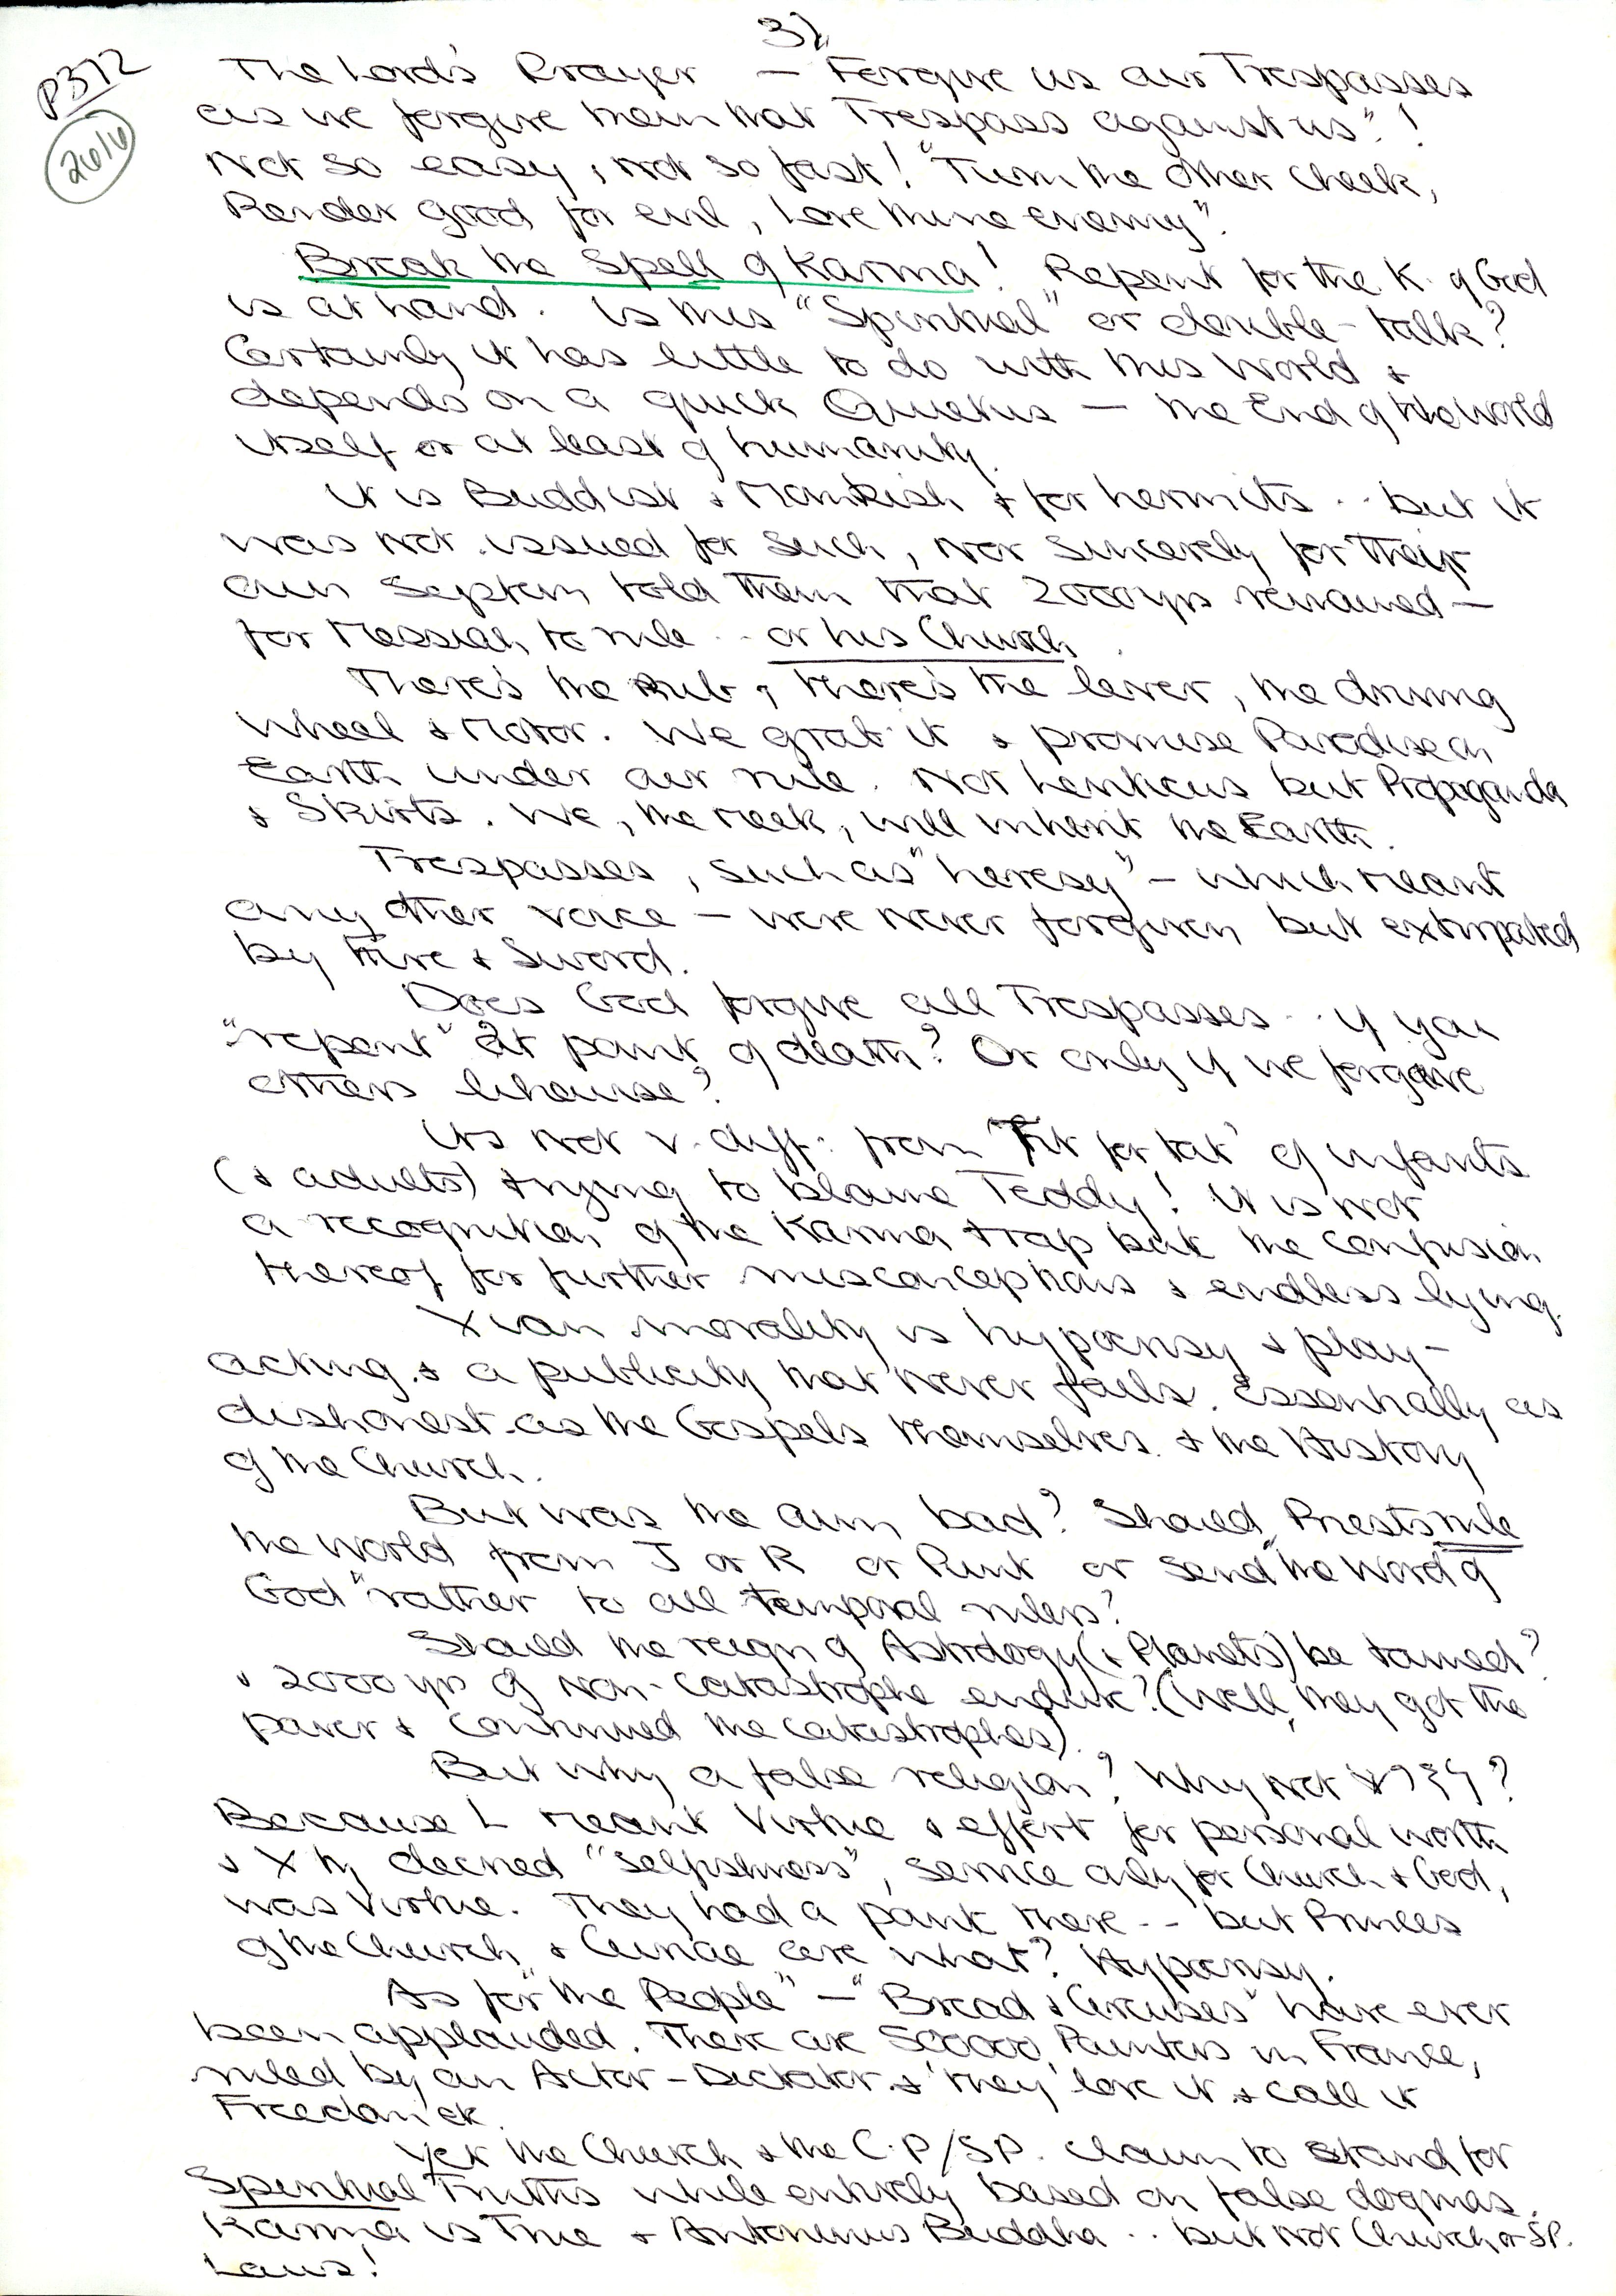 3)
P372
2616
The Lord's Prayer — "Forgive us our Trespasses
as we forgive them that Trespass against us"!
Not so easy, not so fast! "Turn the other cheek,
Render good for evil, Love thine enemy".
Break the Spell of Karma! Repent for the K. of God
is at hand. Is this "Spiritual" or double-talk?
Certainly it has little to do with this World &
depends on a quick Quietus — the End of the World
itself or at least of humanity.
It is Buddist & Monkish & for hermits .. but it
was not issued for such, nor sincerely for their
own System told them that 2000 yrs remained —
for Messiah to rule .. or his Church.
There's the Rub, there's the lever, the driving
Wheel & Motor. We grab it & promise Paradise on
Earth under our rule. Not but Propaganda
& Skirts. We, the Meek, will inherit the Earth.
Trespasses, such as "heresy" — which meant
any other voice — were never forgiven but extirpated
by Fire & Sword.
Does God forgive all Trespasses .. if you
"repent" at point of death? Or only if we forgive
others likewise?
It's not v. diff: from "Tit for tat" of infants
(& adults) trying to blame Teddy! It is not
a recognition of the Karma trap but the confusion
thereof for further misconceptions & endless lying.
Xian morality is hypocrisy & play-
acting & a publicity that never fails. Essentially as
dishonest as the Gospels themselves & the History
of the Church.
But was the aim bad? Should Priests rule
the World from J or R or Punt or send "the Word of
God" rather to all temporal rulers?
Should the reign of Astrology (& Planets) be tamed?
& 2000 yrs of non-catastrophe endure? (Well, they got the
power & continued the catastrophes).
But why a false religion? Why not ?
Because L meant Virtue & effort for personal worth
& Xty decried "selfishness", service only for Church & God,
was Virtue. They had a point there -- but Princes
of the Church & Curiae are what? Hypocrisy.
As for "the People" — "Bread & Circuses" have ever
been applauded. There are 500000 Painters in France,
ruled by an Actor-Dictator & 'they' love it & call it
Freedom etc.
Yet the Church & the C.P/SP. claim to stand for
Spiritual Truths while entirely based on false dogmas.
Karma is True & Antoninus Buddha .. but not Church or SP.
Laws!